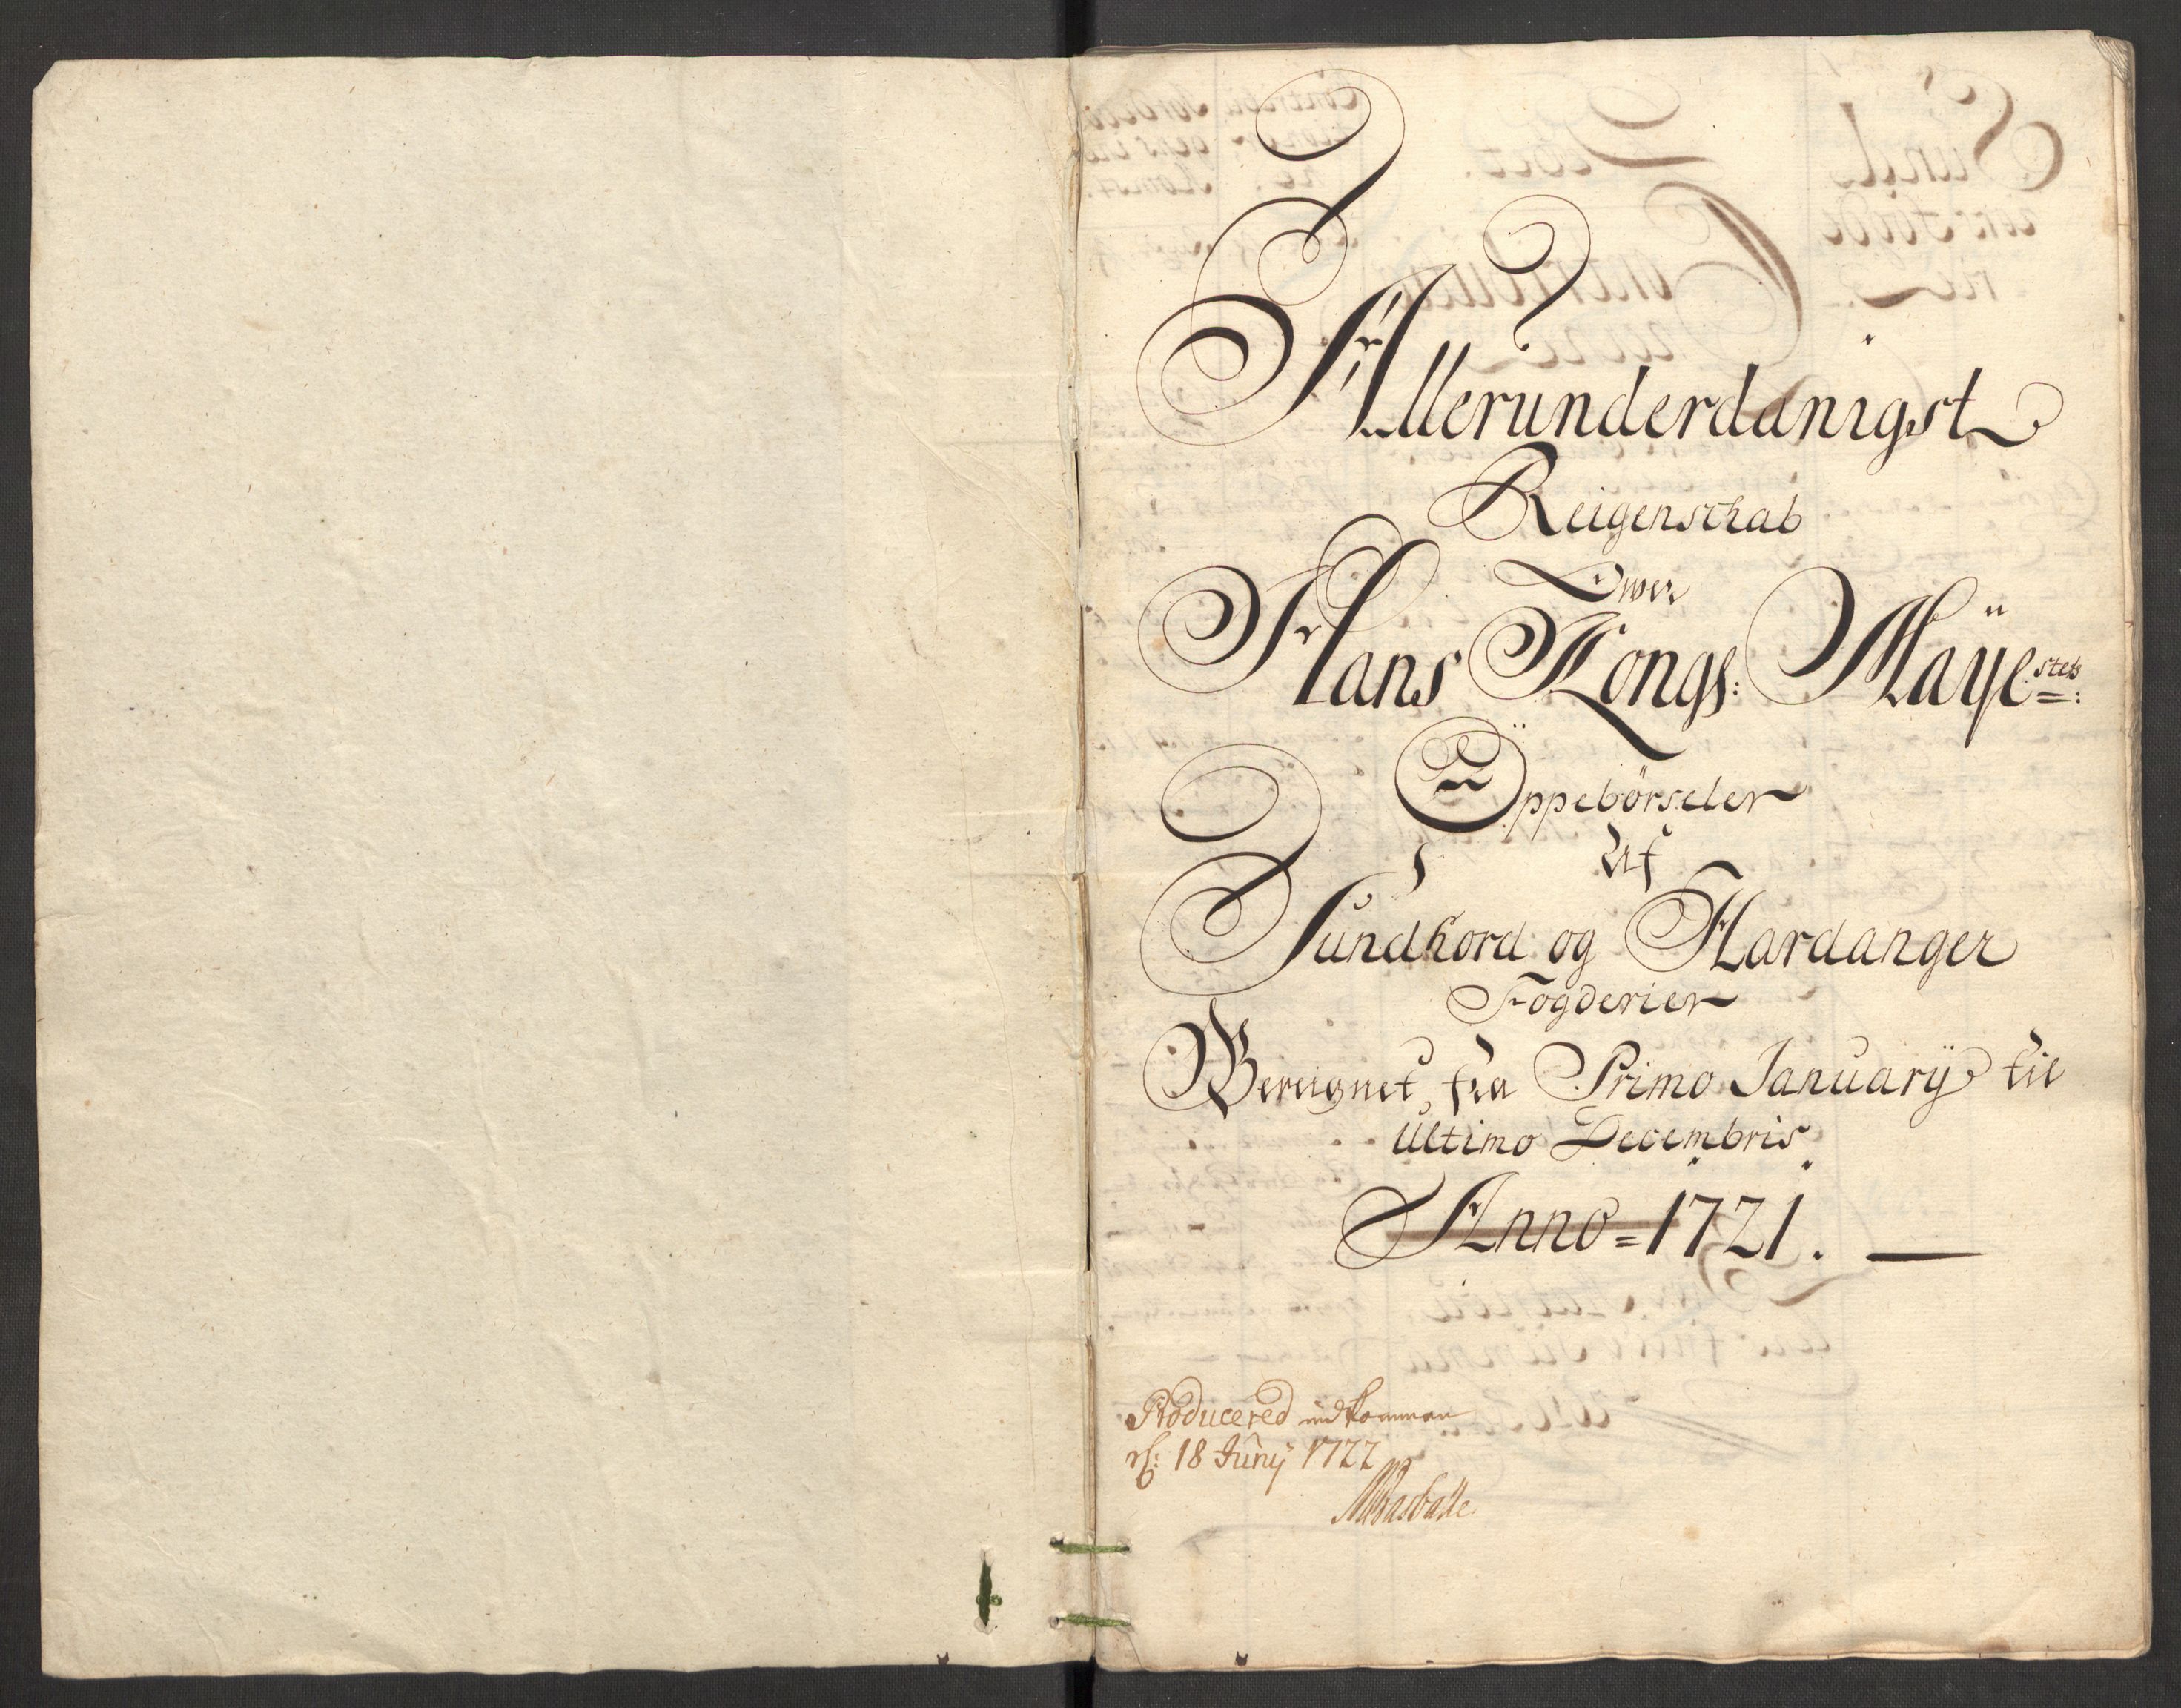 Allerunderdanigst
Reigenskab
Over
Hans Kongs: Maÿe^stets:
Oppebörseler
Af
Sundhord og Hardanger
Fogderier
Bereignet, fra Primo Januarÿ til
Ultimo Decembris
Anno = 1721.
Producered indkommen
18 Junÿ 1722